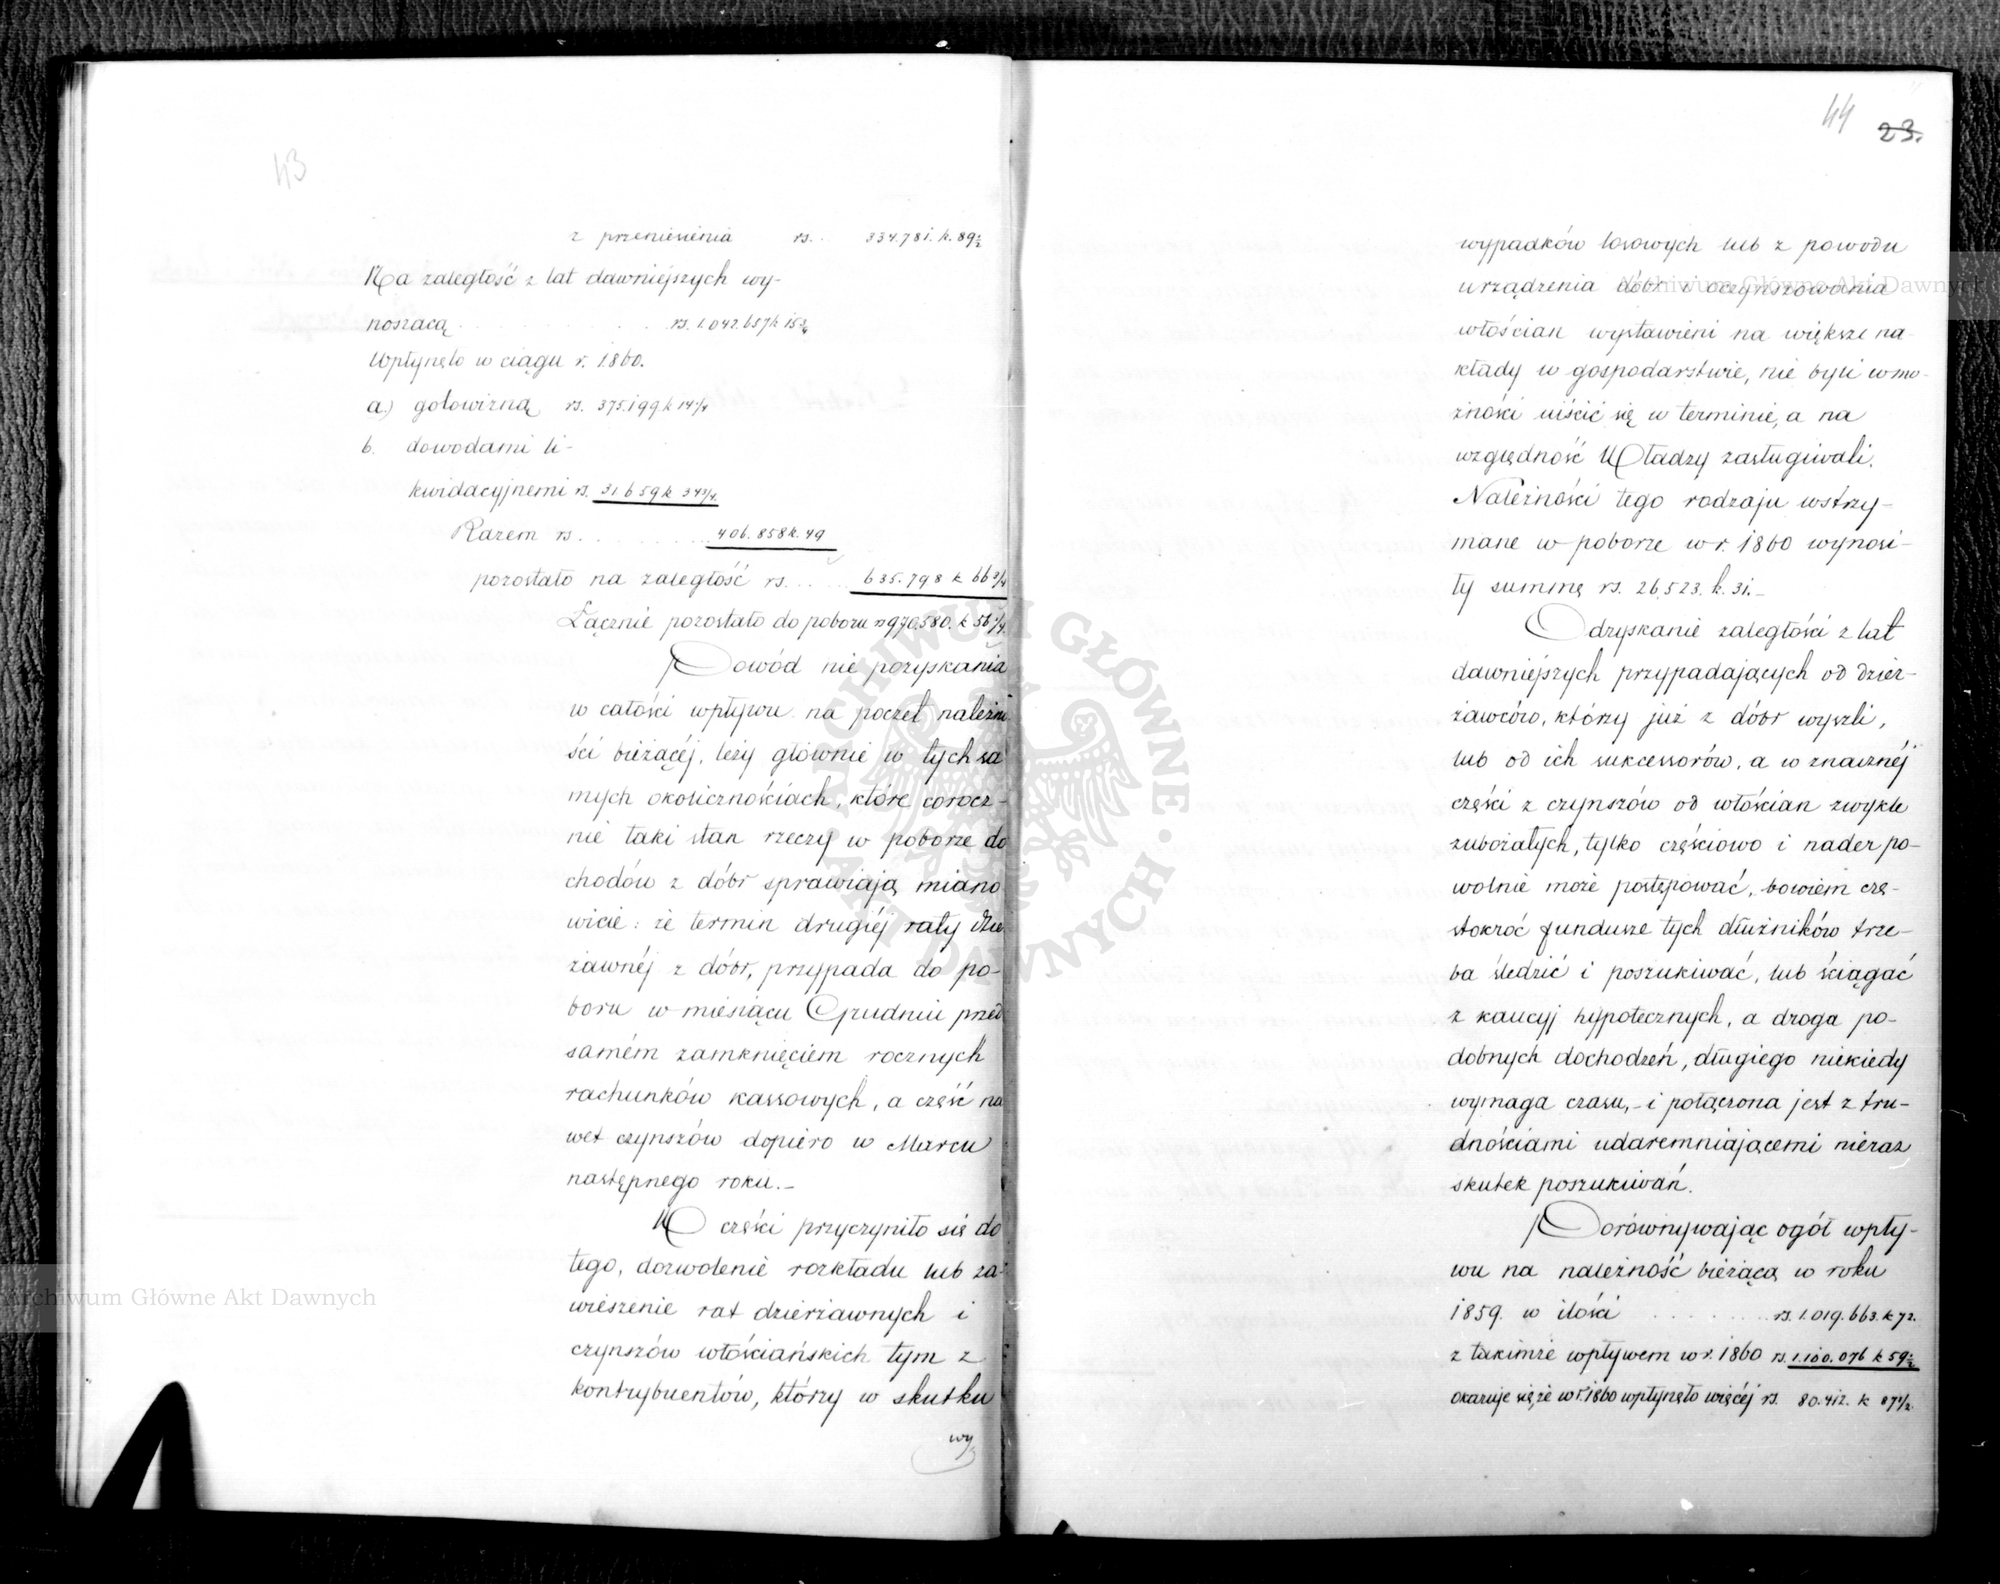 43
z przeniesienia rs. . 334.781. k. 89 1/2
Na zaległość z lat dawniejszych wy-
noszącą . . . . . . . . rs. 1.042.657 k 15 3/4
Wpłynęło w ciągu r. 1860.
a.) gotowizną rs. 375.199 k 14 3/4
b. dowodami li-
kwidacyjnemi rs. 31 659 k 34 1/4.
Razem rs . . . . . . . 406.858 k. 49
pozostało na zaległość rs. . . . . 635.798 k 66 3/4
Łącznie pozostało do poboru rs 970,580. k 56 1/4.
Powód nie pozyskania
w całości wpływu na poczet należno
ści bieżącéj, leży głównie w tych sa
mych okolicznościach, które corocz-
nie taki stan rzeczy w poborze do
chodów z dóbr sprawiają miano
wicie: że termin drugiéj raty dzie
żawnéj z dóbr, przypada do po-
boru w miesiącu Grudniu przed
samém zamknięciem rocznych
rachunków kassowych, a część na
wet czynszów dopiero w Marcu
następnego roku.-
W części przyczyniło się do
tego, dozwolenie rozkładu lub za-
wieszenie rat dzierżawnych i
czynszów włościańskich tym z
kontrybuentów, którzy w skutku
wy
44
23.
wypadków losowych lub z powodu
urządzenia dóbr i oczynszowania
włościan wystawieni na większe na-
kłady w gospodarstwie, nie byli w mo-
żności uiścić się w terminie, a na
względność Władzy zasługiwali.
Należności tego rodzaju wstrzy-
mane w poborze w r. 1860 wynosi-
ły summę rs. 26,523. k. 31.-
Odzyskanie zaległości z lat
dawniejszych przypadających od dzier-
żawców, którzy już z dóbr wyszli,
lub od ich sukcessorów, a w znacznéj
części z czynszów od włościan zwykle
zubożałych, tylko częściowo i nader po-
wolnie może postępować, bowiem czę-
stokroć fundusze tych dłużników trze-
ba śledzić i poszukiwać, lub ściągać
z kaucyj hypotecznych, a droga po-
dobnych dochodzeń, długiego niekiedy
wymaga czasu,- i połączona jest z tru-
dnościami udaremniającemi nieraz
skutek poszukiwań.
Porównywając ogół wpły-
wu na należność bieżącą w roku
1859. w ilości . . . . . . . rs. 1.019.663. k 72.
z takimże wpływem w r. 1860 rs. 1.100.076 k 59 1/2
okazuje się, że w r. 1860 wpłynęło więcéj rs. 80.412. k 87 1/2.
Archiwum Główne Akt Dawnych
Archiwum Główne Akt Dawnych
ARCHIWUM GŁÓWNE · AKT DAWNYCH ·